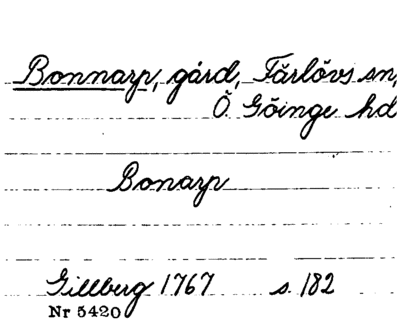 Bonnarp, gård, Färlövs sn,
Ö. Göinge hd
Bonarp
Gillberg 1767 s. 182
Nr 5420